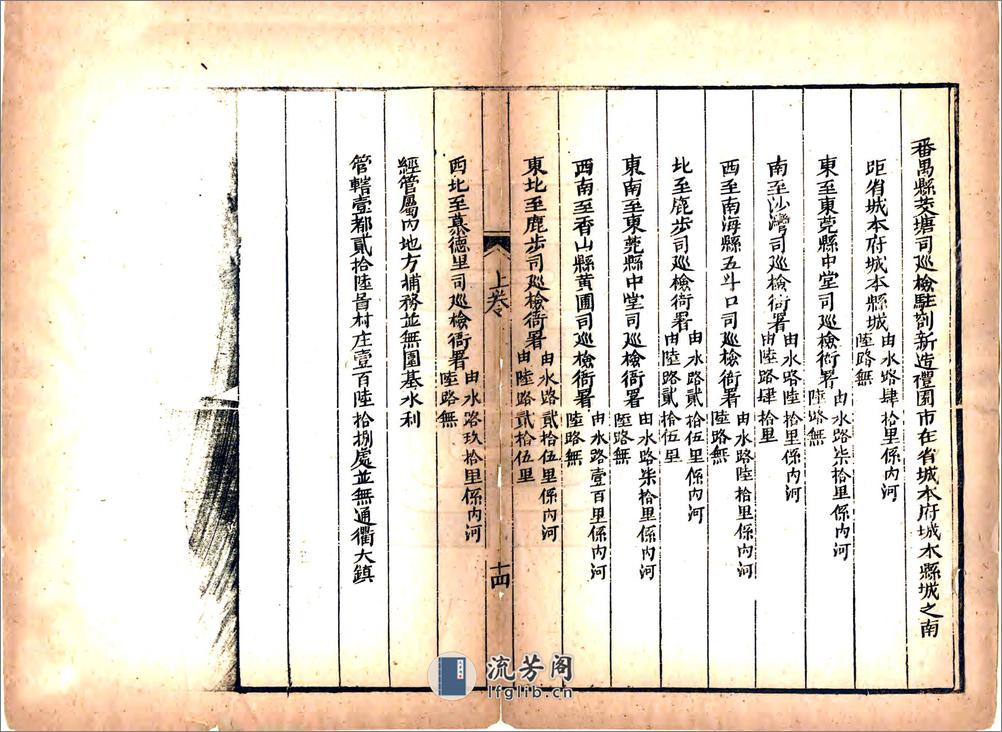 番禺縣茭塘司巡檢駐劄新造禮園市在省城本府城本縣城之南
距省城本府城本縣城由水路肆拾里係內河
陸路無
東至東莞縣中堂司巡檢衙署由水路柒拾里係內河
陸路無
南至沙灣司巡檢衙署由水路陸拾里係內河
由陸路肆拾里
西至南海縣五斗口司巡檢衙署由水路陸拾里係內河
陸路無
北至鹿步司巡檢衙署由水路貳拾伍里係內河
由陸路貳拾伍里
東南至東莞縣中堂司巡檢衙署由水路柒拾里係內河
陸路無
西南至香山縣黃圃司巡檢衙署由水路壹百里係內河
陸路無
上卷
十四
東北至鹿步司巡檢衙署由水路貳拾伍里係內河
由陸路貳拾伍里
西北至慕德里司巡檢衙署由水路玖拾里係內河
陸路無
經管屬內地方捕務並無圍基水利
管轄壹都貳拾陸啚村庄壹百陸拾捌處並無通衢大鎮
流芳阁
lfglib.cn